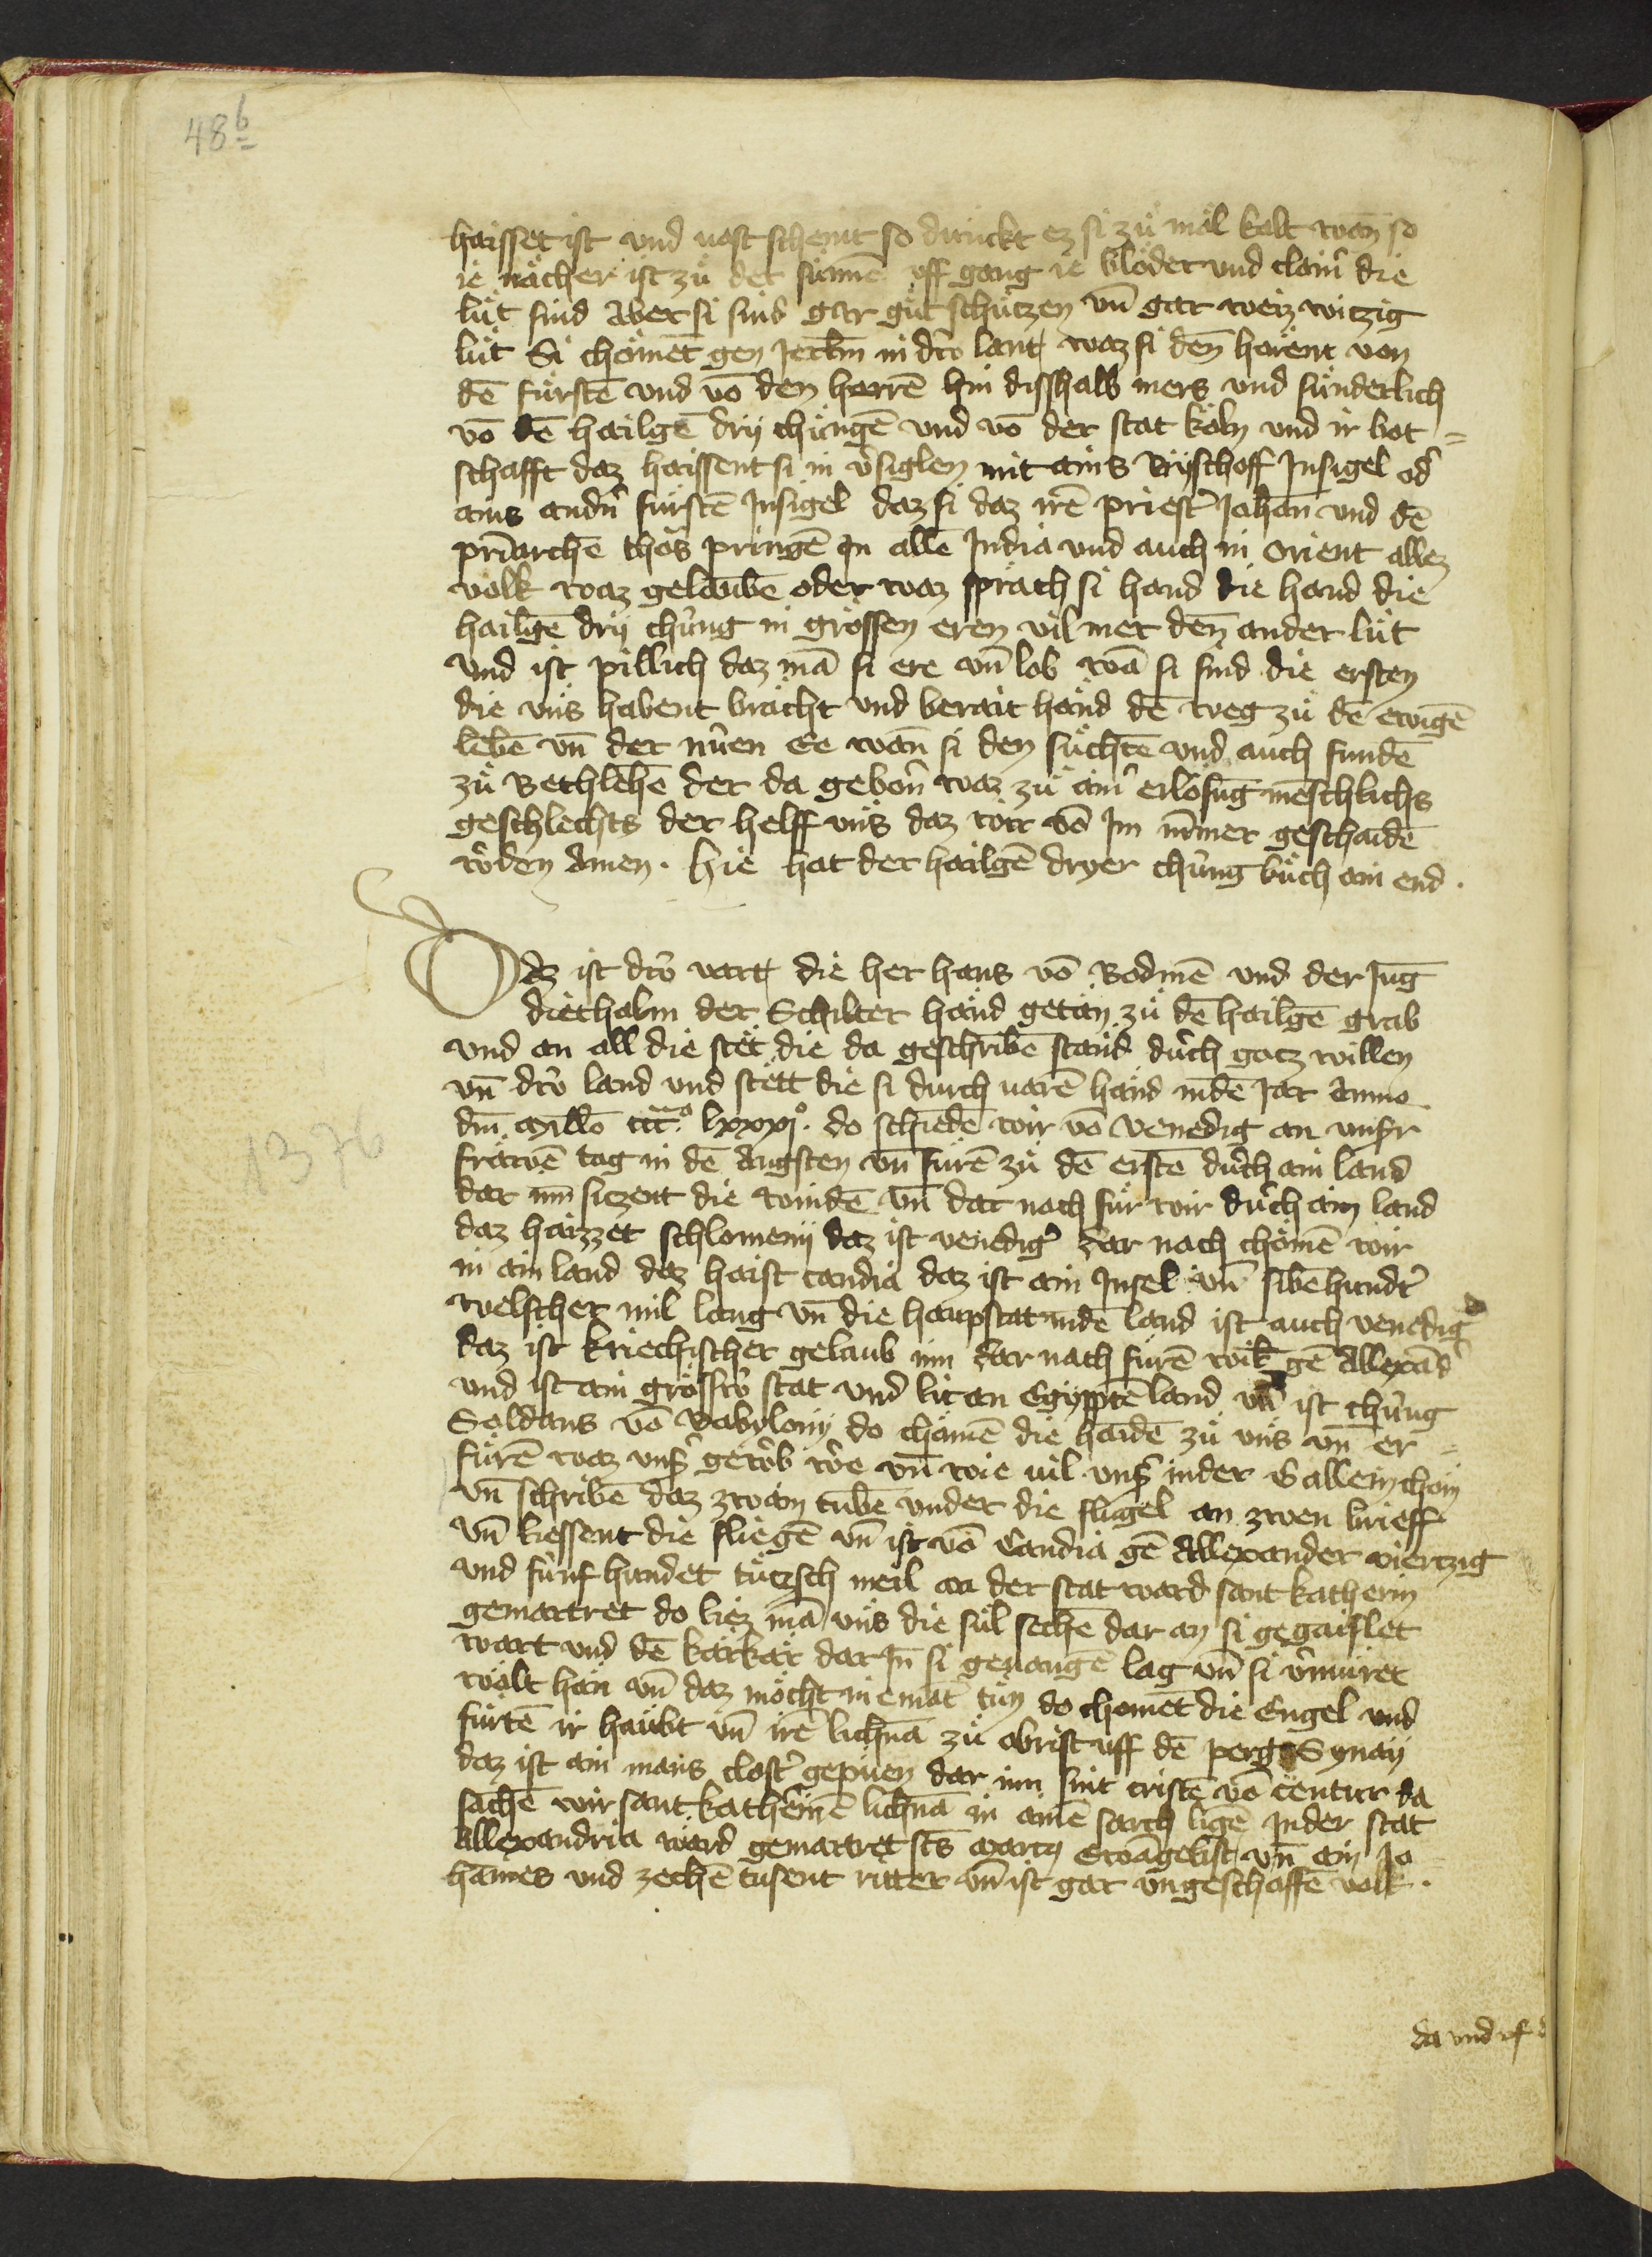 48b
haisset ist vnd vast schemt so dunckt ez si zů mäl kalt wan so
ie nächer ist zů der sunnē vff gang ie blöder vnd clainˀ die
lüt sind Aber si sind gar gůt schützen vn̄ gar weiz witzig
lüt Si chöment gen Jerłm in dˀ lant waz si den̄ hörent von
dē fürstē vnd vō den herrē hin disshalb mers vnd sunderlich
vō dē hailgē drij chüngē vnd vō der stat köln vnd ir bot=
schafft daz haissent si in vˀsiglen mit ains Byschoff Jnsigel odˀ
ains andˀn fürstē Jnsigel daz si daz irē priestˀ Johan̄ vnd dē
pˀiarchē thōs pringē Jn allē India vnd auch in Orient allez
volk waz gelaubē oder waz sprach si hand die hand die
hailgē drij chüng in grossen eren vil mer den̄ ander lüt
vnd ist pillich daz mā si ere vn̄ lob wā si sind die ersten
die vns habent brächt vnd berait hand dē weg zů dē ewigē
lebē vn̄ der nüen Ee wan̄ si den sůchtē vnd auch fundē
zů Bethlehē der da gebonˀ waz zů ainˀ erlösūg mēschlichs
geschlechts der helff vns daz wir vō Im nim̄er geschaidē
wˀden Amen. Hie hat der hailgē dryer chüng bůch ain end.
Daz ist die vart die her hans vō Bodmē vnd der Jūg
diethalm der Schilter händ getän zů dē hailgē grab
vnd an all die stet die da geschribē stand dˀch gotz willen
vn̄ die land vnd stett die si durch uarē händ in dē Jar Anno
dm̄ Millo ccco lxxxjo. do schiedē wir vō Venedig an vnsˀr
frawē tag in dē Augsten vn̄ fůrē zů dē erstē dˀch ain land
dar inn̄ siczent die windē vn̄ dar nach fůr wir dˀch ain land
daz haizzet schlomenij daz ist venedigˀ dar nach chömē wir
in ain land daz haist candia daz ist ain Insel vn̄ sibēhundˀt
welscher mil lang vn̄ die haupstat in dē land ist auch venedigˀ
daz ist kriechischer gelaub inn dar nach fůrē wir gē Allexādˀ
vnd ist ain grossˀ stat vnd lit an Egypptē land vn̄ ist chüng
Soldans vō Babylonij do chömē die haidē zů vns vn̄ er=
fůrē waz vnsˀ gewˀb wˀe vn̄ wie uil vnsˀ in der Gallein chom
vn̄ schribē daz zwain tubē vnder die flügel an zwen brieff
vn̄ liessent die fliegē vn̄ ist vō Candia gē Allexander viertzig
vnd fünf hundet tützsch meil an der stat ward sant katherin
gemartret do liez mā vns die sůl sechē dar an si gegaislet
wart vnd dē karkär dar Jn̄ si geuangē lag vn̄ si vˀmuret
wält hän vn̄ daz möcht niematˀ tůn do choment die Engel vnd
fůrtē ir haubt vn̄ irē lichnā zů obrist vff dē perg Synay
daz ist ain mans clostˀ gepuen dar inn sint cristē vō centur da
sachē wir sant kathˀinē lichnā in ainē sarch ligē In der stat
Allexandria ward gemartret scs̄ Marcg Ewāgelist vn̄ ain Jo
hannes vnd zechē tusent ritter vn̄ ist gar vngeschaffē volk.
1376
da vnd vf